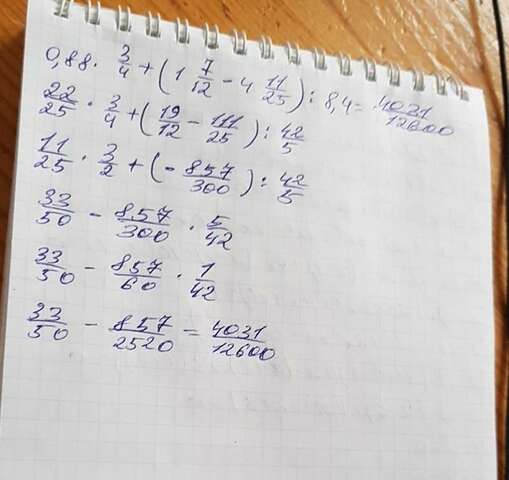 0,88 · 3/4 + (1 7/12 - 4 11/25) : 8,4 = 4031/12600
22/25 · 3/4 + (19/12 - 111/25) : 42/5
11/25 · 3/2 + (- 857/300) : 42/5
33/50 - 857/300 · 5/42
33/50 - 857/60 · 1/42
33/50 - 857/2520 = 4031/12600